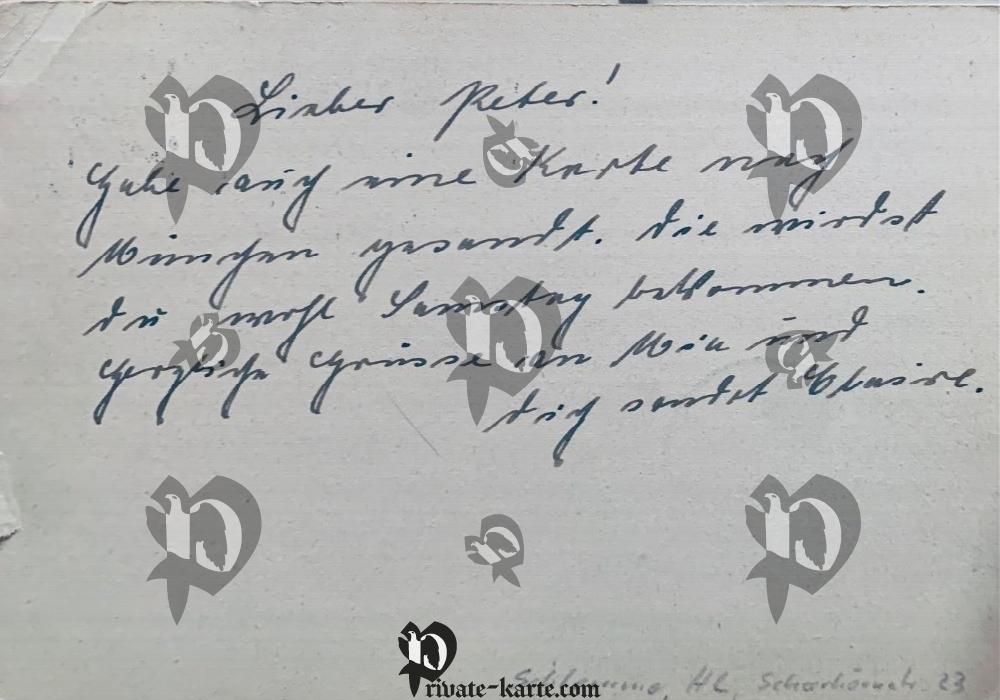 Lieber Peter!
Habe auch eine Karte nach
München gesandt. Die wirdst
du wohl Samstag bekommen.
Herzliche Grüsse an Mia und
dich sendet Claire.
HL 23
Private-karte.com